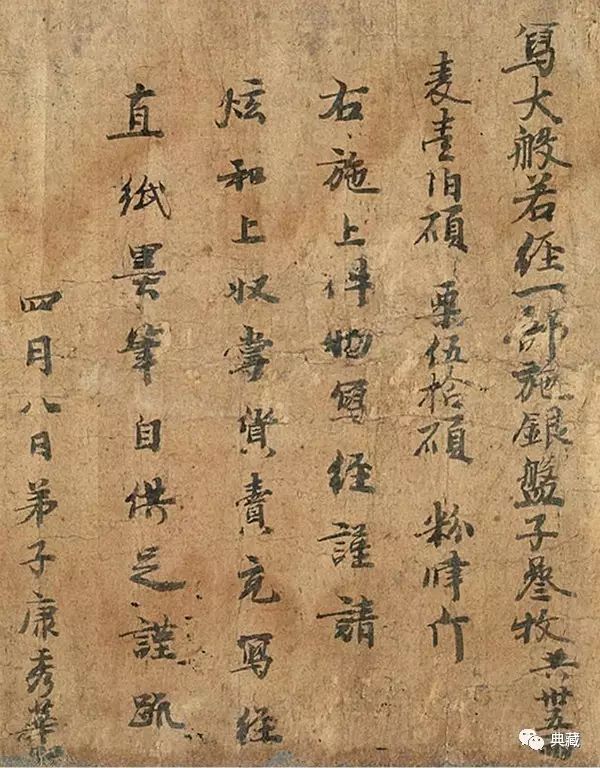 寫大般若經一部施銀盤子叄枚共卅五兩
麦壹伯碩 粟伍拾碩 粉肆斤
右施上件物寫經謹請
炫和上收掌貨賣充寫經
直紙墨筆自供足謹疏
四月八日弟子康秀華
典藏